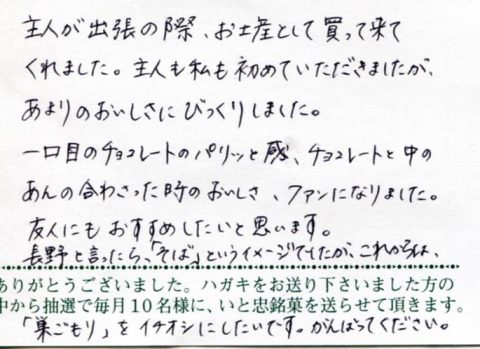 主人が出張の際、お土産として買って来て
くれました。主人も私も初めていただきましたが、
あまりのおいしさにびっくりしました。
一口目のチョコレートのパリッと感、チョコレートと中の
あんの合わさった時のおいしさ、ファンになりました。
友人にもおすすめしたいと思います。
長野と言ったら、「そば」というイメージでしたが、これからは、
ありがとうございました。ハガキをお送り下さいました方の
中から抽選で毎月10名様に、いと忠銘菓を送らせて頂きます。
「巣ごもり」をイチオシにしたいです。がんばってください。